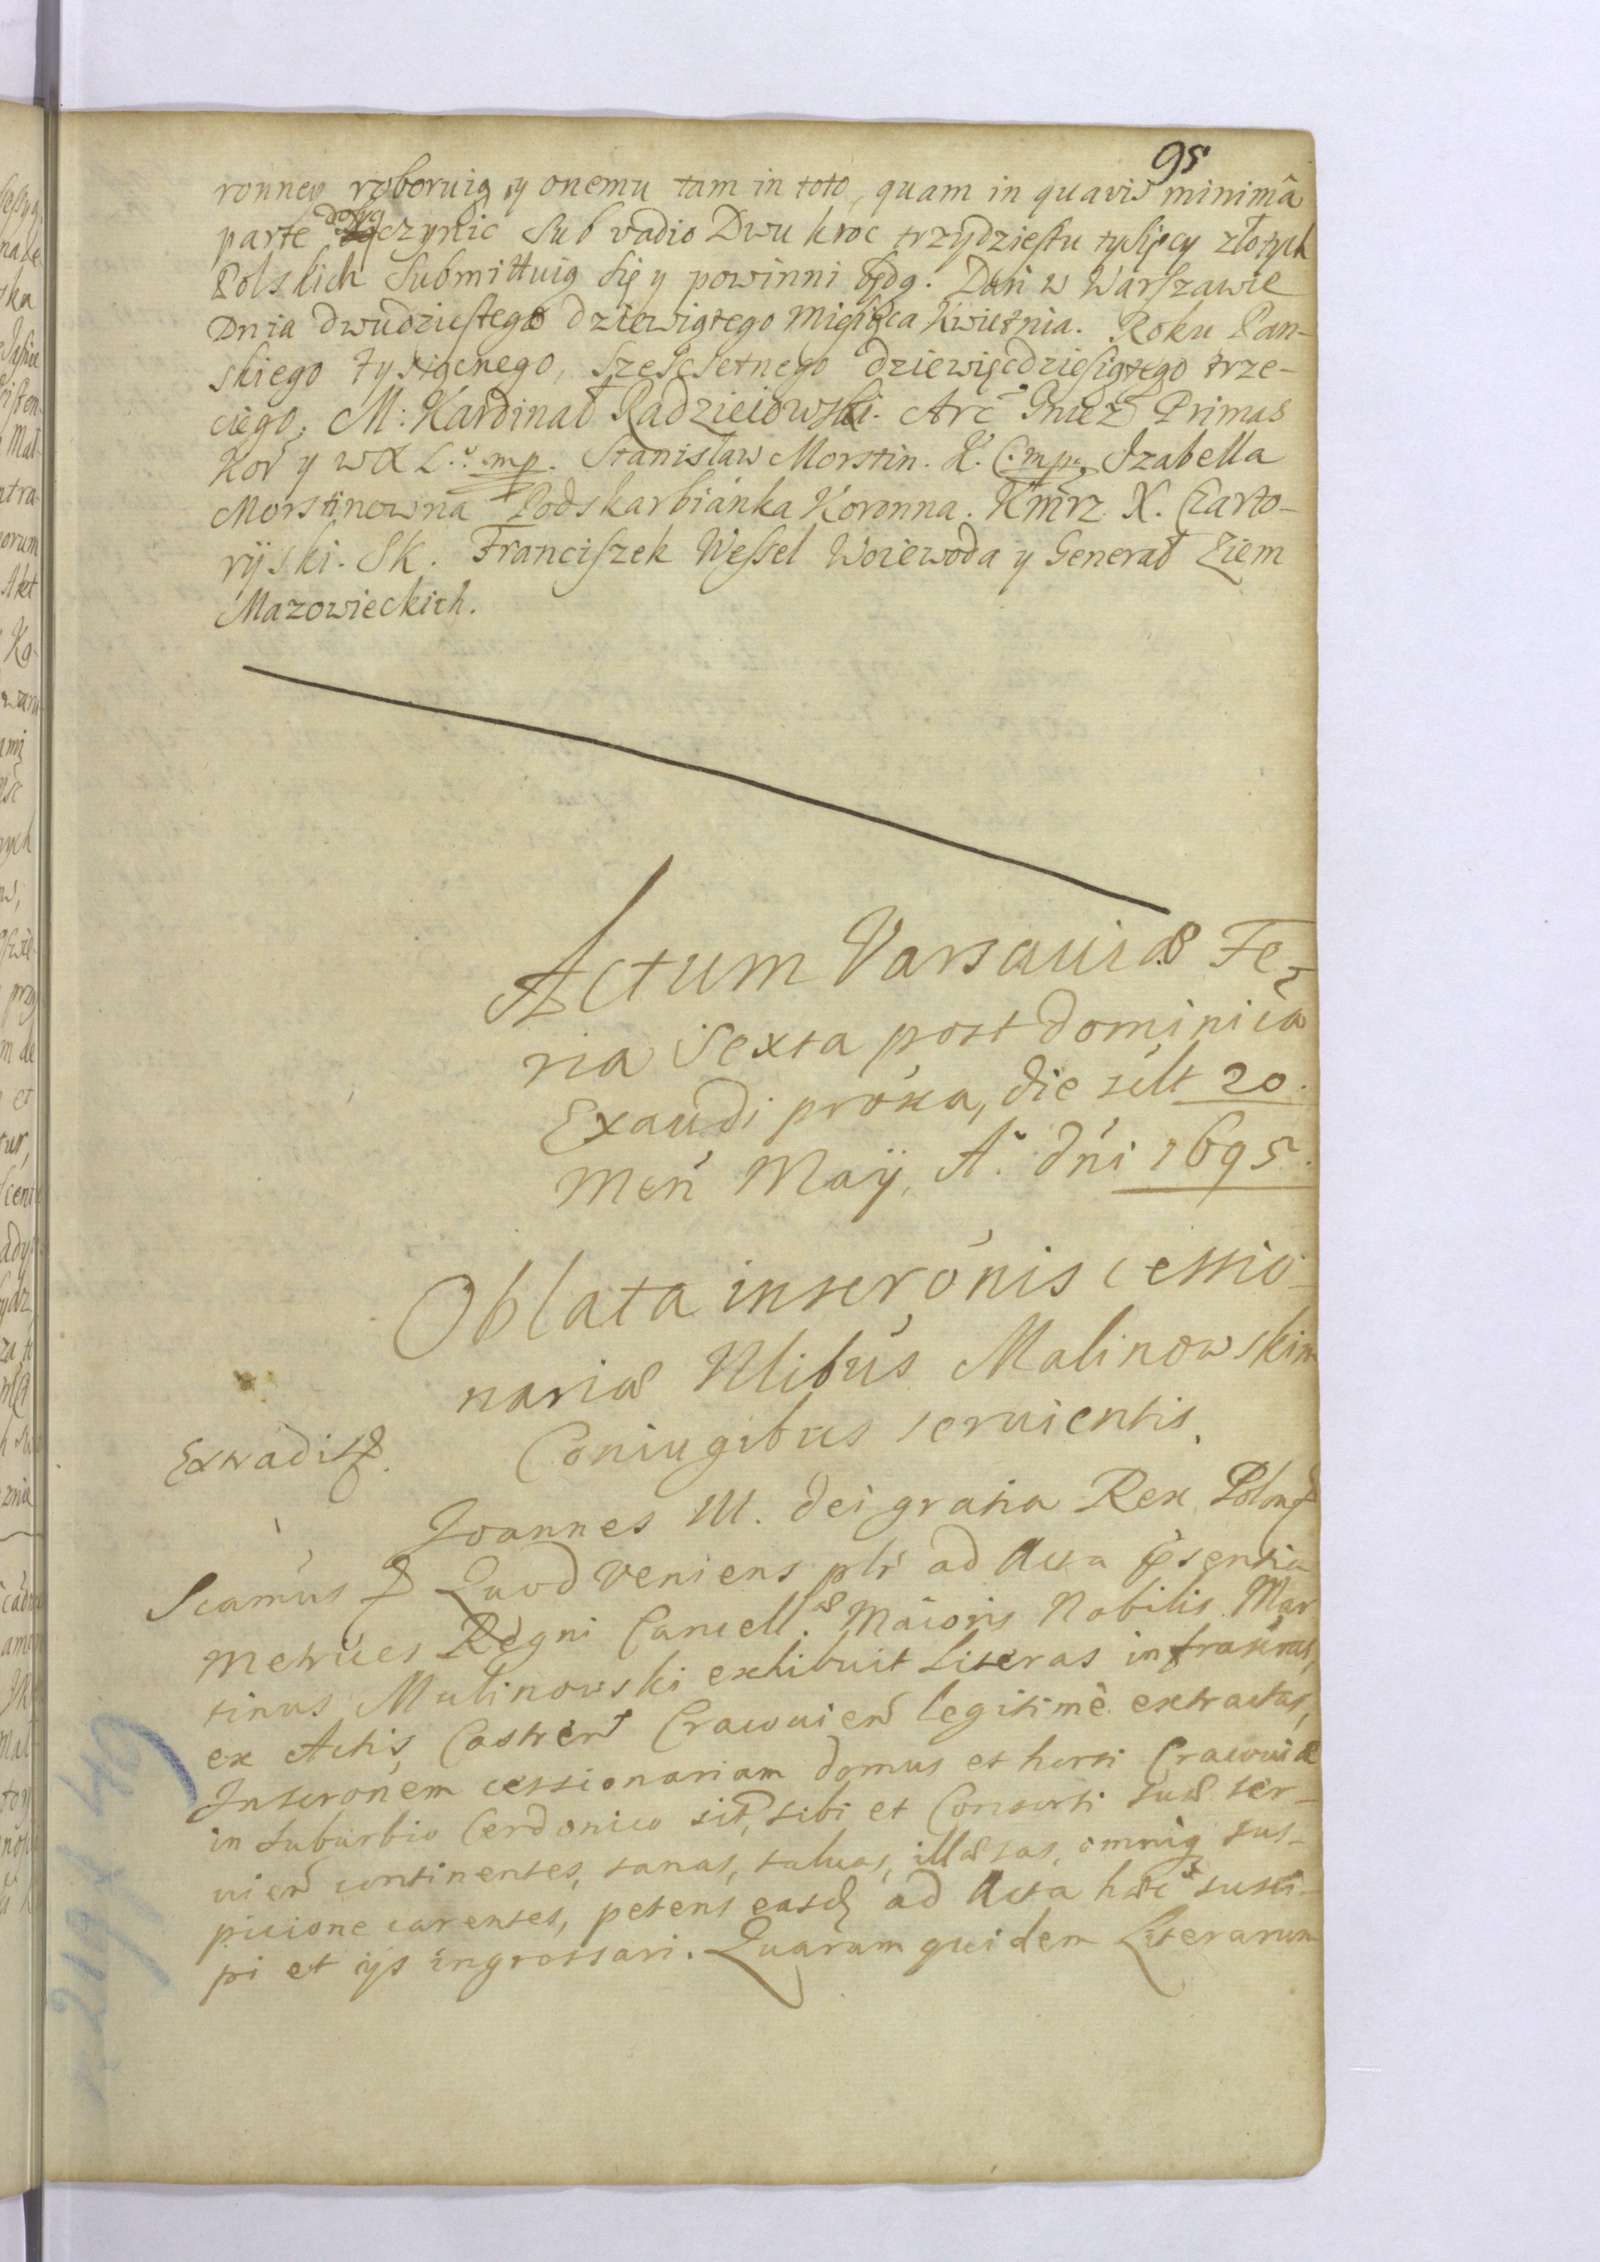 95
ronney roboruią y onemu tam in toto, quam in quavis minimâ
parte dosyć czynić sub vadio Dwu kroc trzydziestu tysięcy złotych
Polskich submittuią się y powinni będą. Dan w Warszawie
Dnia dwudziestego dziewiątego Miesiąca Kwietnia. Roku Pan-
skiego tysiącnego, sześcsetnego dziewięcdziesiątego trze-
ciego. M: Kardinał Radzieiowski. Arc Gniez Primas
Kor y WX L. mp. Stanisław Morstin. K. C. mp. Izabella
Morstinowna Podskarbianka Koronna. Kmrz. X. Czarto-
ryiski. SK. Franciszek Wessel Woiewoda y Generał Ziem
Mazowieckich.
Actum Varsauiæ Fe-
ria Sexta post dominica
Exaudi proxa, die silt 20.
Men Maÿ, A. dni 1695.
Oblata inscronis cessio-
nariæ Nlibus Malinowskim
Coniugibus seruientis.
Extradit
Joannes III. dei gratia Rex Polon
Scamus Quod veniens plr ad Acta psentia
Metrices Regni Cancell. Maioris Nobilis Mar
tinus Malinowski exhibuit Literas infrascras,
ex Actis Castren Cracouien legitimè extractas,
Inscronem cessionariam domus et horti Cracouiæ
in suburbio Cerdonico sit, sibi et Consorti suæ ser-
uien continentes, sanas, saluas, illæsas, omniq sus-
picione carentes, petens easd ad Acta hæc susci-
pi et ijs ingrossari. Quarum quidem Literarum